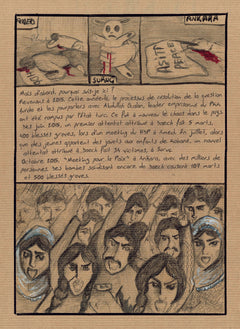 ANKARA
SURUÇ
AŞITI
PEACE
Mais d'abord, pourquoi suis-je ici ?
Revenons à 2015. Cette année-là, le processus de résolution de la question
kurde et les pourparlers avec Abdullah Öcalan, leader emprisonné du PKK
ont été rompus par l'état turc. Ce fut à nouveau le chaos dans le pays.
Dès juin 2015, un premier attentat attribué à Daech fait 5 morts,
400 blessés graves, lors d'un meeting du HDP à Amed. En juillet, alors
que des jeunes apportent des jouets aux enfants de Kobanê, un nouvel
attentat attribué à Daech fait 34 victimes, à Suruç.
Octobre 2015. "Meeting pour la Paix" à Ankara, avec des milliers de
personnes. Des bombes saluèrent encore du Daech coûtent 109 morts
et 500 blessés graves.